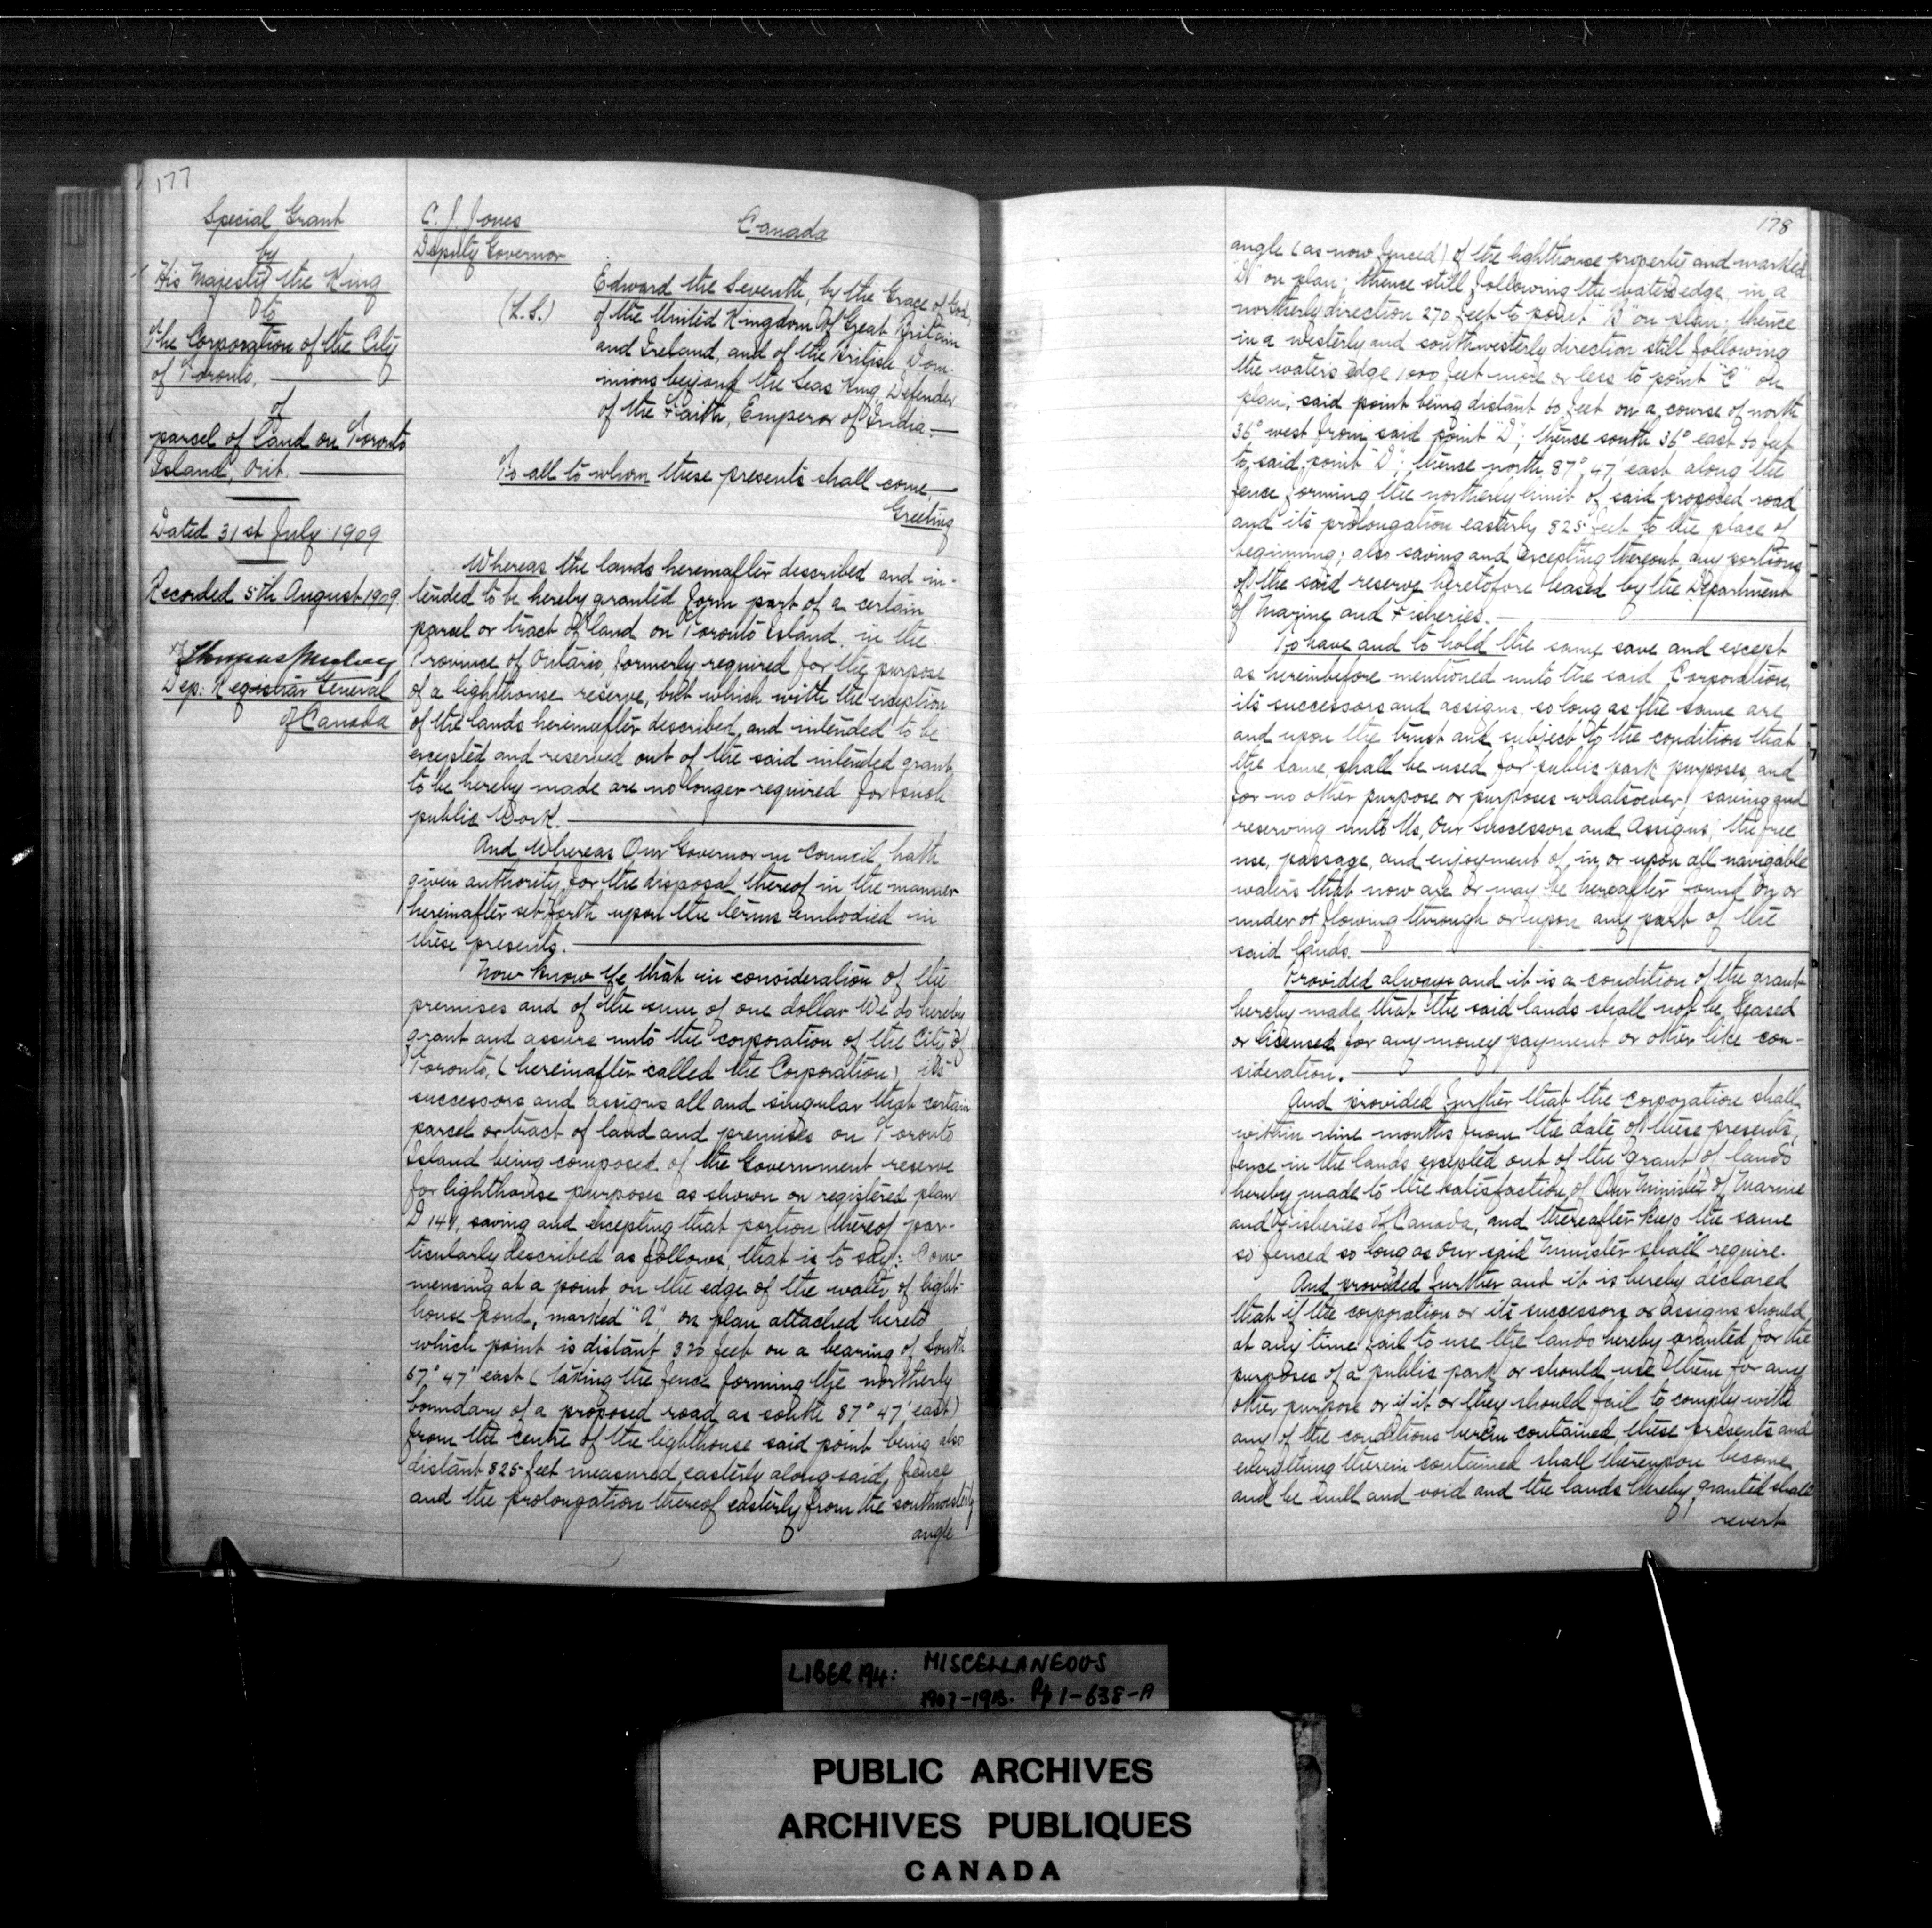 177
Special Grant
by
His Majesty the King
to
The Corporation of the City
of Toronto,
of
parcel of land on Toronto
Island, Ont.
Dated 31st July 1909
Recorded 5th August 1909
Thomas Mulvey
Dep: Registrar General
of Canada
C. J. Jones
Deputy Governor
Canada
(L.S.)
Edward the Seventh, by the Grace of God,
of the United Kingdom of Great Britain
and Ireland, and of the British Dom-
inions beyond the Seas King, Defender
of the Faith, Emperor of India.
To all to whom these presents shall come,
Greeting
Whereas the lands hereinafter described and in-
tended to be hereby granted form part of a certain
parcel or tract of land on Toronto Island, in the
Province of Ontario, formerly required for the purpose
of a lighthouse reserve, but which with the exception
of the lands hereinafter described, and intended to be
excepted and reserved out of the said intended grant
to be hereby made are no longer required for such
public Work.
And Whereas Our Governor in Council hath
given authority for the disposal thereof in the manner
hereinafter set forth upon the terms embodied in
these presents.
Now Know Ye that in consideration of the
premises and of the sum of one dollar We do hereby
grant and assure unto the corporation of the City of
Toronto, (hereinafter called the Corporation) its
successors and assigns all and singular that certain
parcel or tract of land and premises on Toronto
Island being composed of the Government reserve
for lighthouse purposes as shown on registered plan
D 141, saving and excepting that portion thereof par-
ticularly described as follows, that is to say: Com-
mencing at a point on the edge of the water of light-
house pond, marked "A" on plan attached hereto
which point is distant 320 feet on a bearing of South
67° 47' east (taking the fence forming the northerly
boundary of a proposed road as south 87° 47' east)
from the centre of the lighthouse said point being also
distant 825 feet measured easterly along said fence
and the prolongation thereof easterly from the southwesterly
angle
178
angle (as now fenced) of the lighthouse property and marked
"D" on plan; thence still following the waters edge in a
northerly direction 270 feet to point "B" on plan; thence
in a westerly and southwesterly direction still following
the waters edge 1000 feet more or less to point "C" on
plan; said point being distant 60 feet on a course of north
36° west from said point "D"; thence south 36° east 60 feet
to said point "D"; thence north 87° 47' east along the
fence forming the northerly limit of said proposed road
and its prolongation easterly 825 feet to the place of
beginning; also saving and excepting thereout any portions
of the said reserve heretofore leased by the Department
of Marine and Fisheries.
To have and to hold the same save and except
as hereinbefore mentioned unto the said Corporation,
its successors and assigns so long as the same are
and upon the trust and subject to the condition that
the same shall be used for public park purposes, and
for no other purpose or purposes whatsoever; saving and
reserving unto Us, Our Successors and Assigns, the free
use, passage, and enjoyment of, in, or upon all navigable
waters that now are or may be hereafter found on or
under or flowing through or upon any part of the
said lands.
Provided always and it is a condition of the grant
hereby made that the said lands shall not be leased
or licensed for any money payment or other like con-
sideration.
And provided further that the Corporation shall
within nine months from the date of these presents,
fence in the lands excepted out of the grant of lands
hereby made to the satisfaction of Our Minister of Marine
and Fisheries of Canada, and thereafter keep the same
so fenced so long as Our said Minister shall require.
And provided further and it is hereby declared
that if the corporation or its successors or assigns should
at any time fail to use the lands hereby granted for the
purposes of a public park or should use them for any
other purpose or if it or they should fail to comply with
any of the conditions herein contained these presents and
everything therein contained shall thereupon become
and be null and void and the lands hereby granted shall
revert
LIBER 194: MISCELLANEOUS
1907-1913. Pp 1-638-A
PUBLIC ARCHIVES
ARCHIVES PUBLIQUES
CANADA